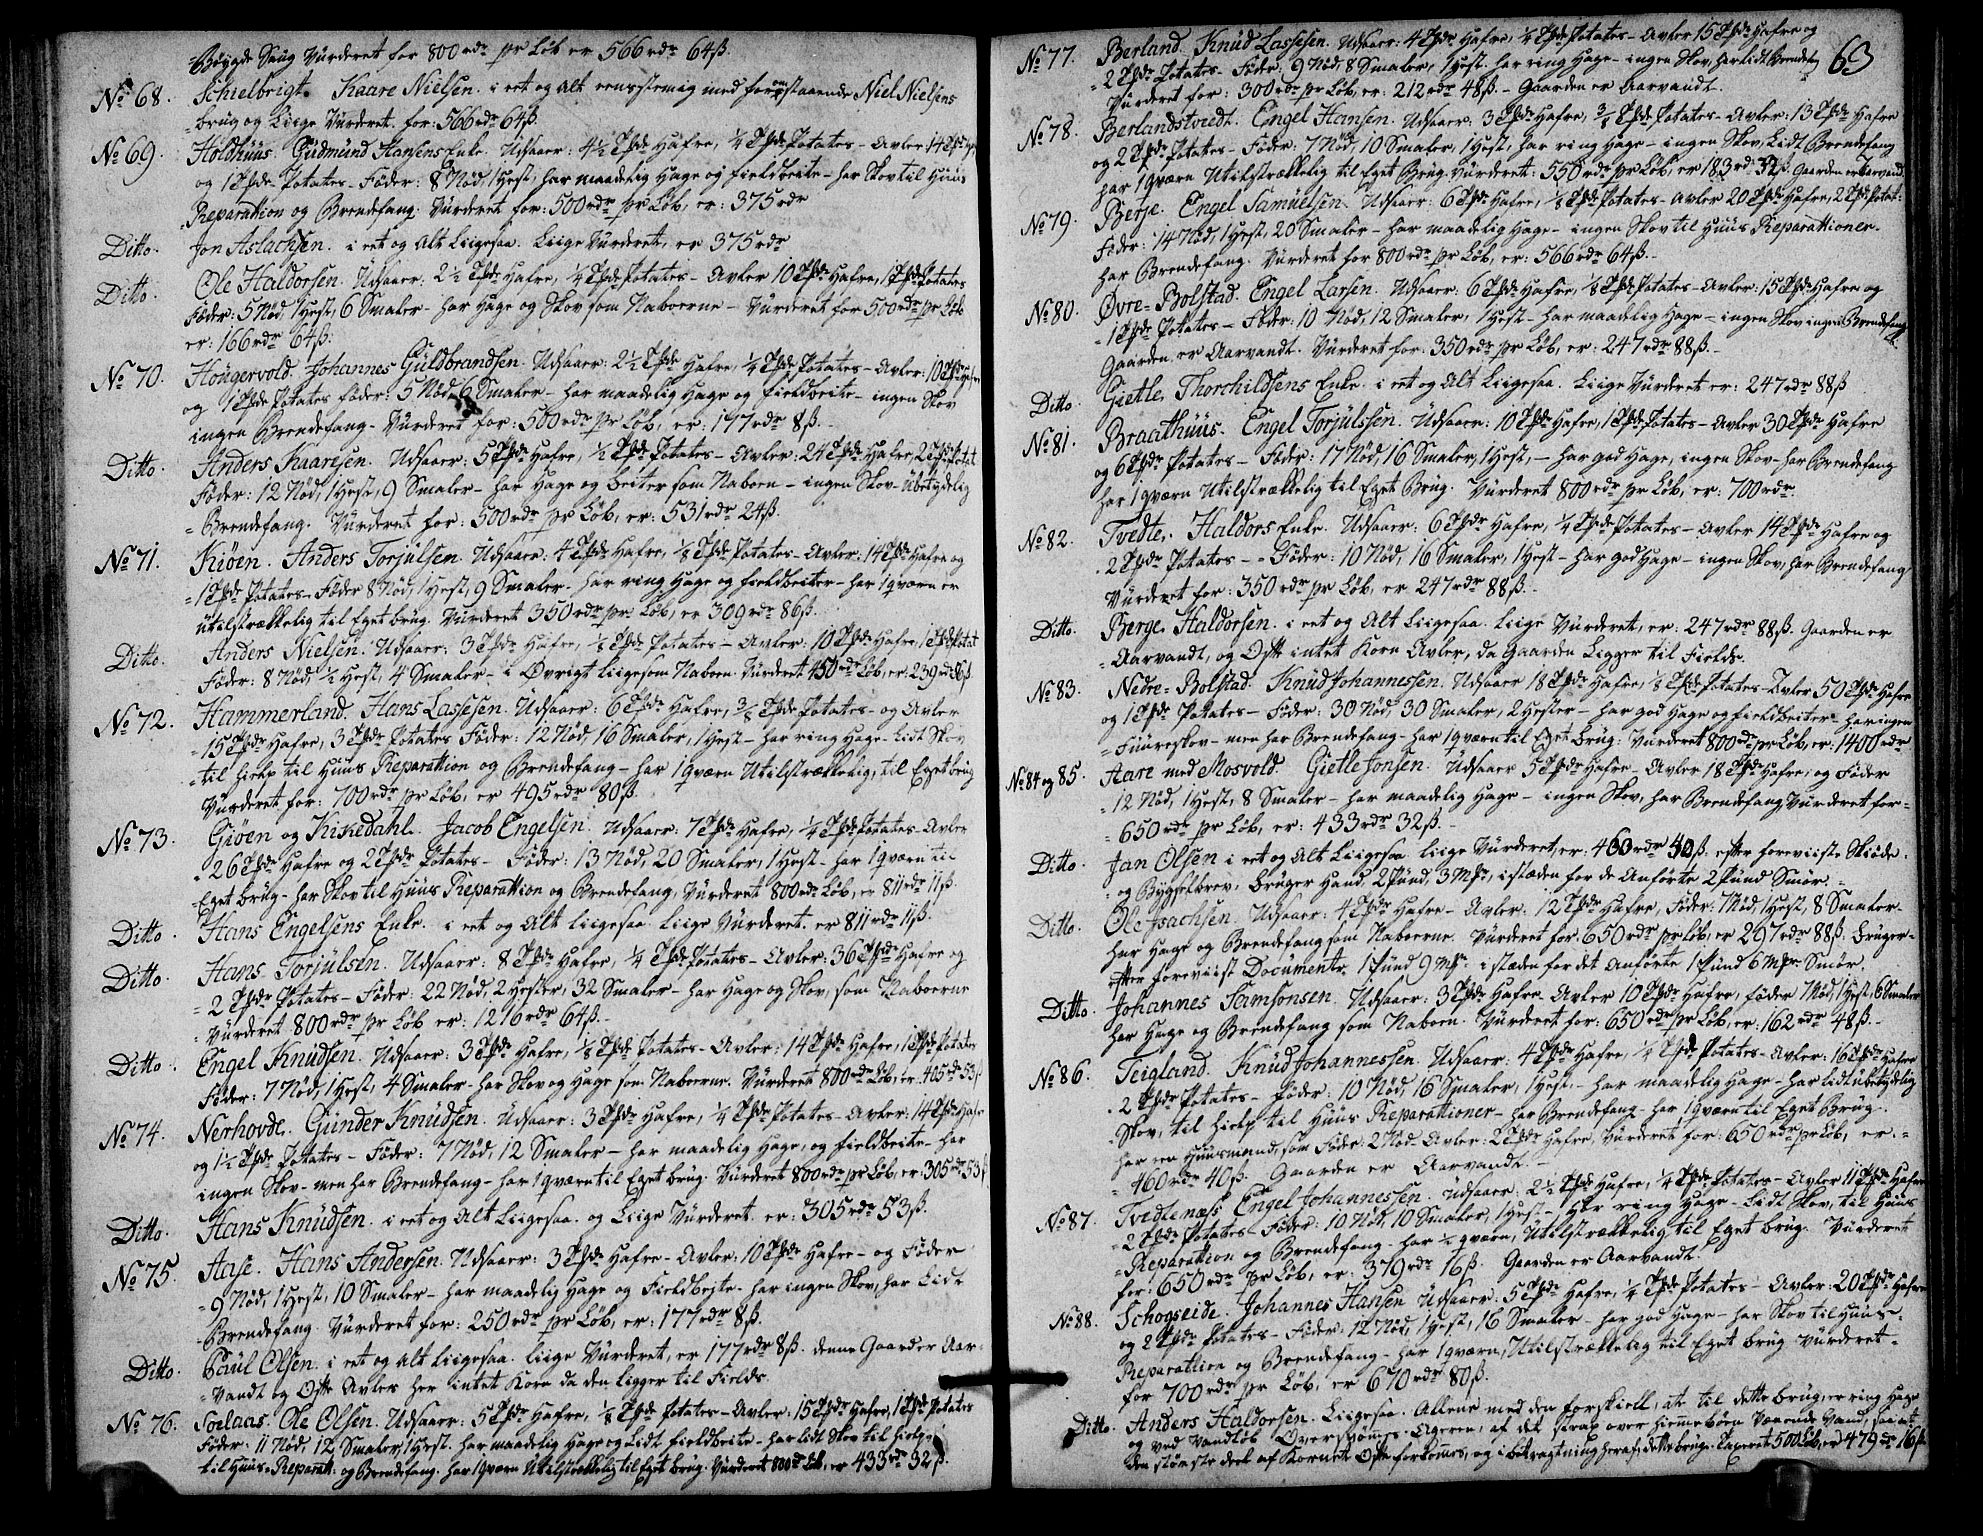 Bøygde Saug Vurderet for 800 rdr pr Løb er 566 rdr 64ß.
No 68. Schielbrigt. Kaare Nielsen. i eet og Alt eensstemig med forenstaaende Niel Nielsens
brug og Liige Vurderet. for: 566 rdr 64ß.
No 69. Holdhuus. Gudmund Hansens Enke. Udsaaer: 4½ Tpde Hafre, ¼ Tpde Potates - Avler 14 Tpde Hafre
og 1 Tpde Potates - Føder: 8 Nød, 1 Hest, har maadelig Hage og fieldbeite - har Skov til Huus
Reparattion og Brendefang. Vurderet for: 500 rdr pr Løb, er: 375 rdr
Ditto. Jon Aslachsen. i eet og Alt Liigesaa. Liige Vurderet, er 375 rdr
Ditto. Ole Haldorsen. Udsaaer: 2½ Tpde Hafre, ¼ Tpde Potates - Avler 10 Tpde Hafre, 1 Tpde Potates
Føder: 5 Nød, 1 Hest, 6 Smaler - har Hage og Skov som Naboerne - Vurderet for 500 rdr pr Løb
er: 166 rdr 64ß.
No 70. Hougervold. Johannes Guldbrandsen. Udsaaer: 2½ Tpde Hafre, ¼ Tpde Potates - Avler: 10 Tpde Hafre
og 1 Tpde Potates føder: 5 Nød, 6 Smaler - har maadelig Hage og fieldbeite - ingen Skov
ingen Brendefang - Vurderet for: 500 rdr pr Løb, er: 177 rdr 8ß.
Ditto. Anders Kaaresen. Udsaaer: 5 Tpde Hafre, ½ Tpde Potates - Avler: 24 Tpde Hafre, 2 Tpde Potat
Føder: 12 Nød, 1 Hest, 9 Smaler - har Hage og beiter som Naboen - ingen Skov - Ubetydelig
Brendefang. Vurderet for: 500 rdr pr Løb, er: 531 rdr 24ß.
No 71. Kiøen. Anders Torjulsen. Udsaaer: 4 Tpde Hafre, ⅛ Tpde Potates - Avler: 14 Tpde Hafre og
1 Tpde Potates - Føder 8 Nød, 1 Hest, 9 Smaler - har ring Hage og fieldbeiter - har 1 qværn er
utilstrækkelig til Eget brug. Vurderet 350 rdr pr Løb, er 309 rdr 86ß.
Ditto. Anders Nielsen. Udsaaer: 3 Tpde Hafre, ⅛ Tpde Potates - Avler: 10 Tpde Hafre, 1 Tpde Potat
Føder: 8 Nød, ½ Hest, 4 Smaler - i Øvrigt Liigesom Naboen. Vurderet 450 rdr Løb, er: 239 rdr 56ß.
No 72. Hammerland. Hans Lassesen. Udsaaer: 6 Tpde Hafre, ⅜ Tpde Potates - og Avler
15 Tpde Hafre, 3 Tpde Potates Føder: 12 Nød, 16 Smaler, 1 Hest - har ring Hage - Lidt Skov
til hielp til Huus Reparattion og Brendefang - har 1 qværn Utilstrækkelig, til Eget brug
Vurderet for: 700 rdr pr Løb, er 495 rdr 80ß.
No 73. Giøen og Kikedahl. Jacob Engelsen. Udsaaer: 7 Tpde Hafre, ¼ Tpde Potates - Avler
26 Tpde Hafre og 2 Tpde Potates - Føder: 13 Nød, 20 Smaler, 1 Hest - har 1 qværn til
Eget brug - har Skov til Huus Reparattion og Brendefang, Vurderet 800 rdr Løb, er 811 rdr 11ß.
Ditto. Hans Engelsens Enke. i eet og Alt Liigesaa. Liige Vurderet. er 811 rdr 11ß.
Ditto. Hans Torjulsen. Udsaaer: 8 Tpde Hafre, ¼ Tpde Potates - Avler: 36 Tpde Hafre og
2 Tpde Potates - Føder: 22 Nød, 2 Hester, 32 Smaler - har Hage og Skov, som Naboerne
Vurderet 800 rdr pr Løb er: 1216 rdr 64ß.
Ditto. Engel Knudsen. Udsaaer: 3 Tpde Hafre, ⅛ Tpde Potates - Avler: 14 Tpde Hafre, 1 Tpde Potates
Føder: 7 Nød, 1 Hest, 4 Smaler - har Skov og Hage som Naboerne. Vurderet 800 rdr Løb, er: 405 rdr 53ß
No 74. Nerhovde. Gunder Knudsen. Udsaaer: 3 Tpde Hafre, ¼ Tpde Potates - Avler: 14 Tpde Hafre
og 1½ Tpde Potates - Føder: 7 Nød, 12 Smaler - har maadelig Hage, og fieldbeite - har
ingen Skov - men har Brendefang - har 1 qværn til Eget brug. Vurderet 800 rdr pr Løb, er: 305 rdr 53ß
Ditto. Hans Knudsen. i eet og Alt Liigesaa. og Liige Vurderet. er: 305 rdr 53ß.
No 75. Aase. Hans Andersen. Udsaaer: 3 Tpde Hafre - Avler: 10 Tpde Hafre - og Føder
9 Nød, 1 Hest, 10 Smaler - har maadelig Hage og Fieldbeite - har ingen Skov, har Lidt
Brendefang. Vurderet for: 250 rdr pr Løb, er: 177 rdr 8ß.
Ditto. Paul Olsen. i eet og alt Liigesaa. liige Vurderet, er 177 rdr 8ß. denne Gaard er Aar-
vandt og Ofte Avles her intet Korn da den Ligger til Fields.
No 76. Sælaas. Ole Olsen. Udsaaer: 5 Tpde Hafre, ⅛ Tpde Potates - Avler: 15 Tpde Hafre, 1 Tpde Potates
Føder: 11 Nød, 12 Smaler, 1 Hest. har maadelig Hage og Lidt fieldbeite - har lidt Skov til hielp
til Huus-Reparatt: og Brendefang. har 1 qværn Utilstrækkelig til Eget brug. Vurderet 800 rdr Løb, er 433 rdr 32ß.
63
No 77. Berland. Knud Lassesen. Udsaaer: 4 Tpde Hafre, ¼ Tpde Potates - Avler 15 Tpde Hafre og
2 Tpde Potates - Føder: 9 Nød, 8 Smaler, 1 Hest. har ring Hage - ingen Skov, har lidt Brendefang
Vurderet for: 300 rdr pr Løb, er: 212 rdr 48ß. - Gaarden er Aarvandt.
No 78. Berlandstvedt. Engel Hansen. Udsaaer: 3 Tpde Hafre, ⅜ Tpde Potates - Avler: 13 Tpde Hafre
og 2 Tpde Potates - Føder: 7 Nød, 10 Smaler, 1 Hest, har ring Hage - ingen Skov, Lidt Brendefang
har 1 qværn Utilstrækkelig til Eget Brug. Vurderet: 550 rdr pr Løb, er 183 rdr 32ß. Gaarden er Aarvandt
No 79. Berje. Engel Samuelsen. Udsaaer: 6 Tpde Hafre, ⅛ Tpde Potates - Avler 20 Tpde Hafre, 2 Tpde Potat:
Føder: 14 Nød, 1 Hest, 20 Smaler - har maadelig Hage - ingen Skov til Huus Reparattioner.
har Brendefang. Vurderet for 800 rdr pr Løb, er: 566 rdr 64ß. -
No 80. Øvre-Bolstad. Engel Larsen. Udsaaer: 6 Tpde Hafre, ⅛ Tpde Potates - Avler: 15 Tpde Hafre og
1 Tpde Potates - Føder: 10 Nød, 12 Smaler, 1 Hest - har maadelig Hage - ingen Skov ingen Brendefang
Gaarden er Aarvandt. Vurderet for: 350 rdr pr Løb, er: 247 rdr 88ß. -
Ditto. Gietle Thorchildsens Enke. i eet og Alt Liigesaa. Liige Vurderet er: 247 rdr 88ß
No 81. Braathuus. Engel Torjulssen. Udsaaer: 10 Tpde Hafre, 1 Tpde Potates - Avler 30 Tpde Hafre
og 6 Tpde Potates - Føder: 17 Nød, 16 Smaler, 1 Hest, - har god Hage, ingen Skov - har Brendefang
har 1 qværn Utilstrækkelig til Eget Brug. Vurderet 800 rdr pr Løb, er: 700 rdr.
No 82. Tvedte. Haldors Enke. Udsaaer: 6 Tpde Hafre, ¼ Tpde Potates - Avler 14 Tpde Hafre og
2 Tpde Potates - - Føder: 10 Nød, 16 Smaler, 1 Hest - har god Hage - ingen Skov, har Brendefang
Vurderet for: 350 rdr pr Løb, er 247 rdr 88ß. -
Ditto. Berge Haldorsen. i eet og Alt Liigesaa. liige Vurderet, er: 247 rdr 88ß. Gaarden er
Aarvandt, og Ofte intet Korn Avler, da Gaarden Ligger til Fields.
No 83. Nedre-Bolstad. Knud Johannessen. Udsaaer 18 Tpde Hafre, ⅛ Tpde Potates - Avler 50 Tpde Hafre
og 1 Tpde Potates - Føder: 30 Nød, 30 Smaler, 2 Hester - har god Hage og fieldbeiter - har ingen
Fuureskov - men har Brendefang - har 1 qværn til Eget brug: Vurderet 800 rdr pr Løb, er: 1400 rdr
No 84 og 85. Aare med Mosvold. Gietle Jonsen. Udsaaer 5 Tpde Hafre - Avler 18 Tpde Hafre, og Føder
12 Nød, 1 Hest, 8 Smaler - har maadelig Hage - ingen Skov, har Brendefang Vurderet for-
650 rdr pr Løb, er: 433 rdr 32ß. -
Ditto Jan Olsen i eet og Alt Liigesaa liige Vurderet, er: ß. efter foreviiste Skiøde.
og Bygselbrev. bruger Hand 2 Pund, 3 Mpr, i stæden for de Anførte 2 Pund Smør.
Ditto. Ole Isachsen. Udsaaer: 4 Tpde Hafre - Avler: 12 Tpde Hafre, Føder: 7 Nød, 1 Hest, 8 Smaler -
har Hage og Brendefang som Naboerne. Vurderet for. 650 rdr pr Løb, er 297 rdr 88ß. bruger -
efter foreviist Documenter 1 Pund 9 Mpr i stæden for det Anførte 1 Pund 6 Mpr Smør.
Ditto. Johannes Samsonsen. Udsaaer: 3 Tpde Hafre - Avler 10 Tpde Hafre, føder 7 Nød, 1 Hest, 6 Smaler
har Hage og Brendefang som Naboen. Vurderet for: 650 rdr pr Løb, er: 162 rdr 48ß. -
No 86. Teigland. Knud Johannessen. Udsaaer: 4 Tpde Hafre, ¼ Tpde Potates - Avler: 16 Tpde Hafre
2 Tpde Potates - Føder: 10 Nød, 16 Smaler, 1 Hest. - har maadelig Hage - har lidt ubetydelig
Skov, til hielp til Huus Reparattioner - har Brendefang - har 1 qværn til Eget Brug.
har een Huusmand, som Føder: 2 Nød. Avler: 2 Tpde Hafre, Vurderet for: 650 rdr pr Løb, er. -
460 rdr 40ß. Gaarden er Aarvandt. -
No 87. Tvedtenæss Engel Johannessen. Udsaaer: 2½ Tpde Hafre, ¼ Tpde Potates - Avler 11 Tpde Hafre
2 Tpde Potates - Føder: 10 Nød, 10 Smaler, 1 Hest - har ring Hage - Lidt Skov, til Huus
Reparattion og Brendefang - har ½ qværn, Utilstrækkelig til Eget brug. Vurderet
for: 650 rdr pr Løb, er: 379 rdr 16ß. Gaarden er Aarvandt.
No 88. Schogseide. Johannes Hansen Udsaaer: 5 Tpde Hafre, ¼ Tpde Potates - Avler: 20 Tpde Hafre
og 2 Tpde Potates - Føder: 12 Nød, 1 Hest, 16 Smaler - har god Hage - har Skov til Huus-
Reparattion og Brendefang - har 1 qværn, Utilstrækkelig til Eget brug Vurderet -
for 700 rdr pr Løb, er 670 rdr 80ß.
Ditto. Anders Haldorsen. Liigesaa. Allene med den forskiell, at til dette brug, er ring Hage
og ved Vandløb Oversvømes Ageren, af det strax over hiemebøen Værende Vand, saa at
den største deel af Kornet Ofte forkomes, og i betragtning heraf, dette brug - Taxeret 500 Løb, er 479 rdr 16ß.